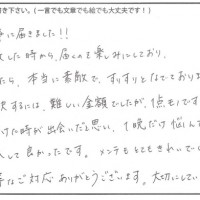 き下さい。(一言でも文章でも絵でも大丈夫です!)
に届きました!!
した時から、届くのを楽しみにしており、
たら、本当に素敵で、すっすりとなでております
するには、難しい金額でしたが、1点モノです
けた時が出会いだと思い、1晩だけ悩んで
して良かったです。メンテもとてもきれいでし
等なご対応ありがとうございます。大切にしてい